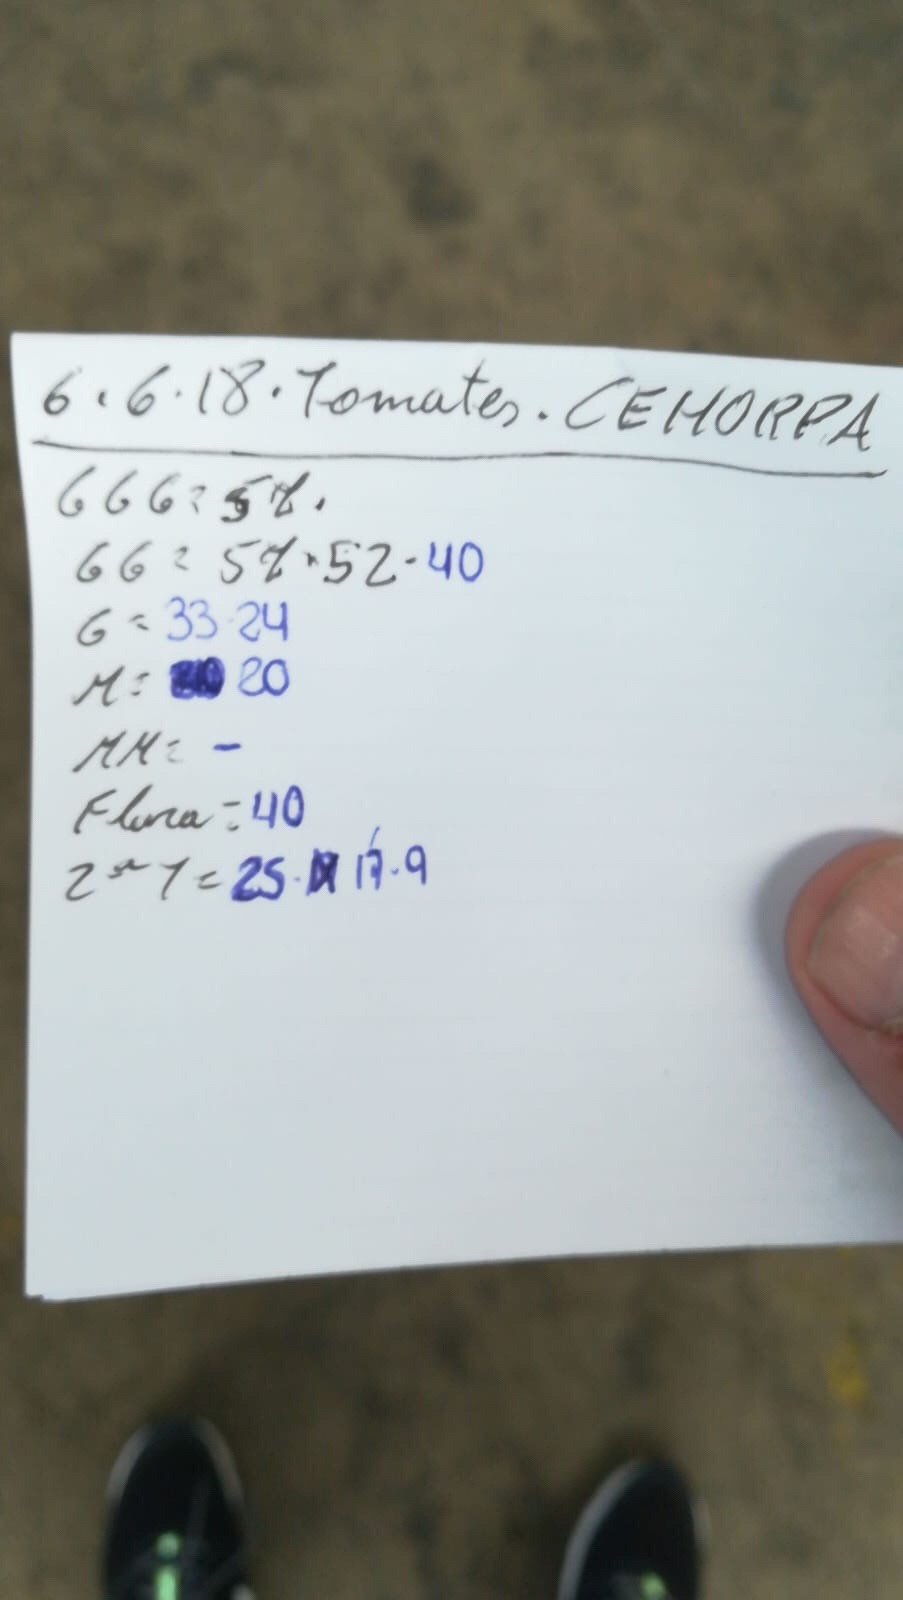 6.6.18.Tomates. CEHORPA
GGG= 57.
GG= 57.52-40
G= 33-24
M= 20
MM= -
Flora=40
2ª 1= 25. 17.9